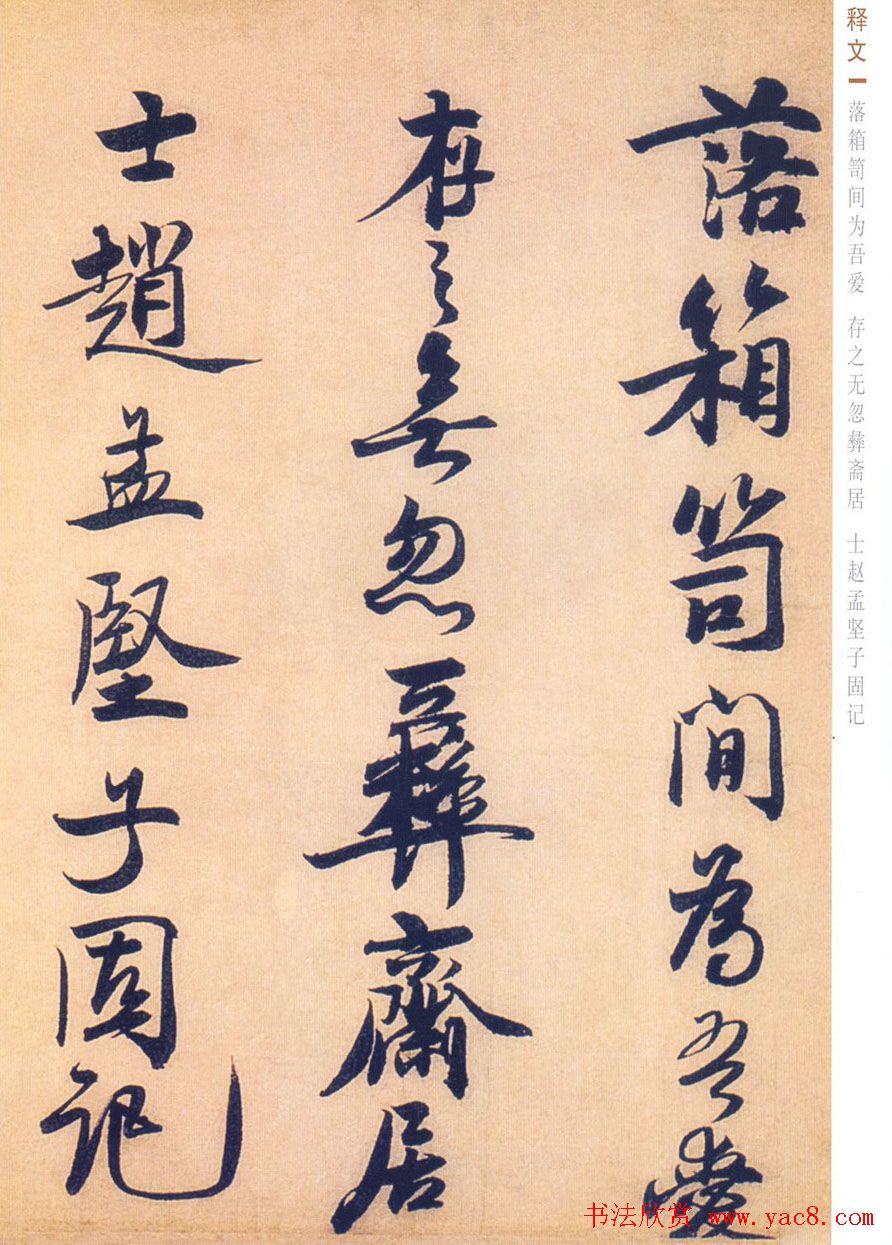 落箱笥間為吾愛
存之無忽彝齋居
士趙孟堅子固記
释文
落箱笥间为吾爱 存之无忽彝斋居 士赵孟坚子固记
书法欣赏 www.yac8.com